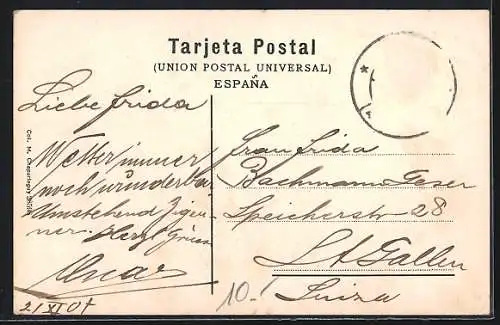 Tarjeta Postal
(UNION POSTAL UNIVERSAL)
ESPAÑA
Liebe Frida
Wetter immer
noch wunderbar
Umstehend Zigeu-
ner. Herzl Grüsse
Oscar
21 XI 07
Frau Frida
Bachmann-Goser
Speicherstr 28
St Gallen
Suiza
10.-
Col. M. Chapartegui